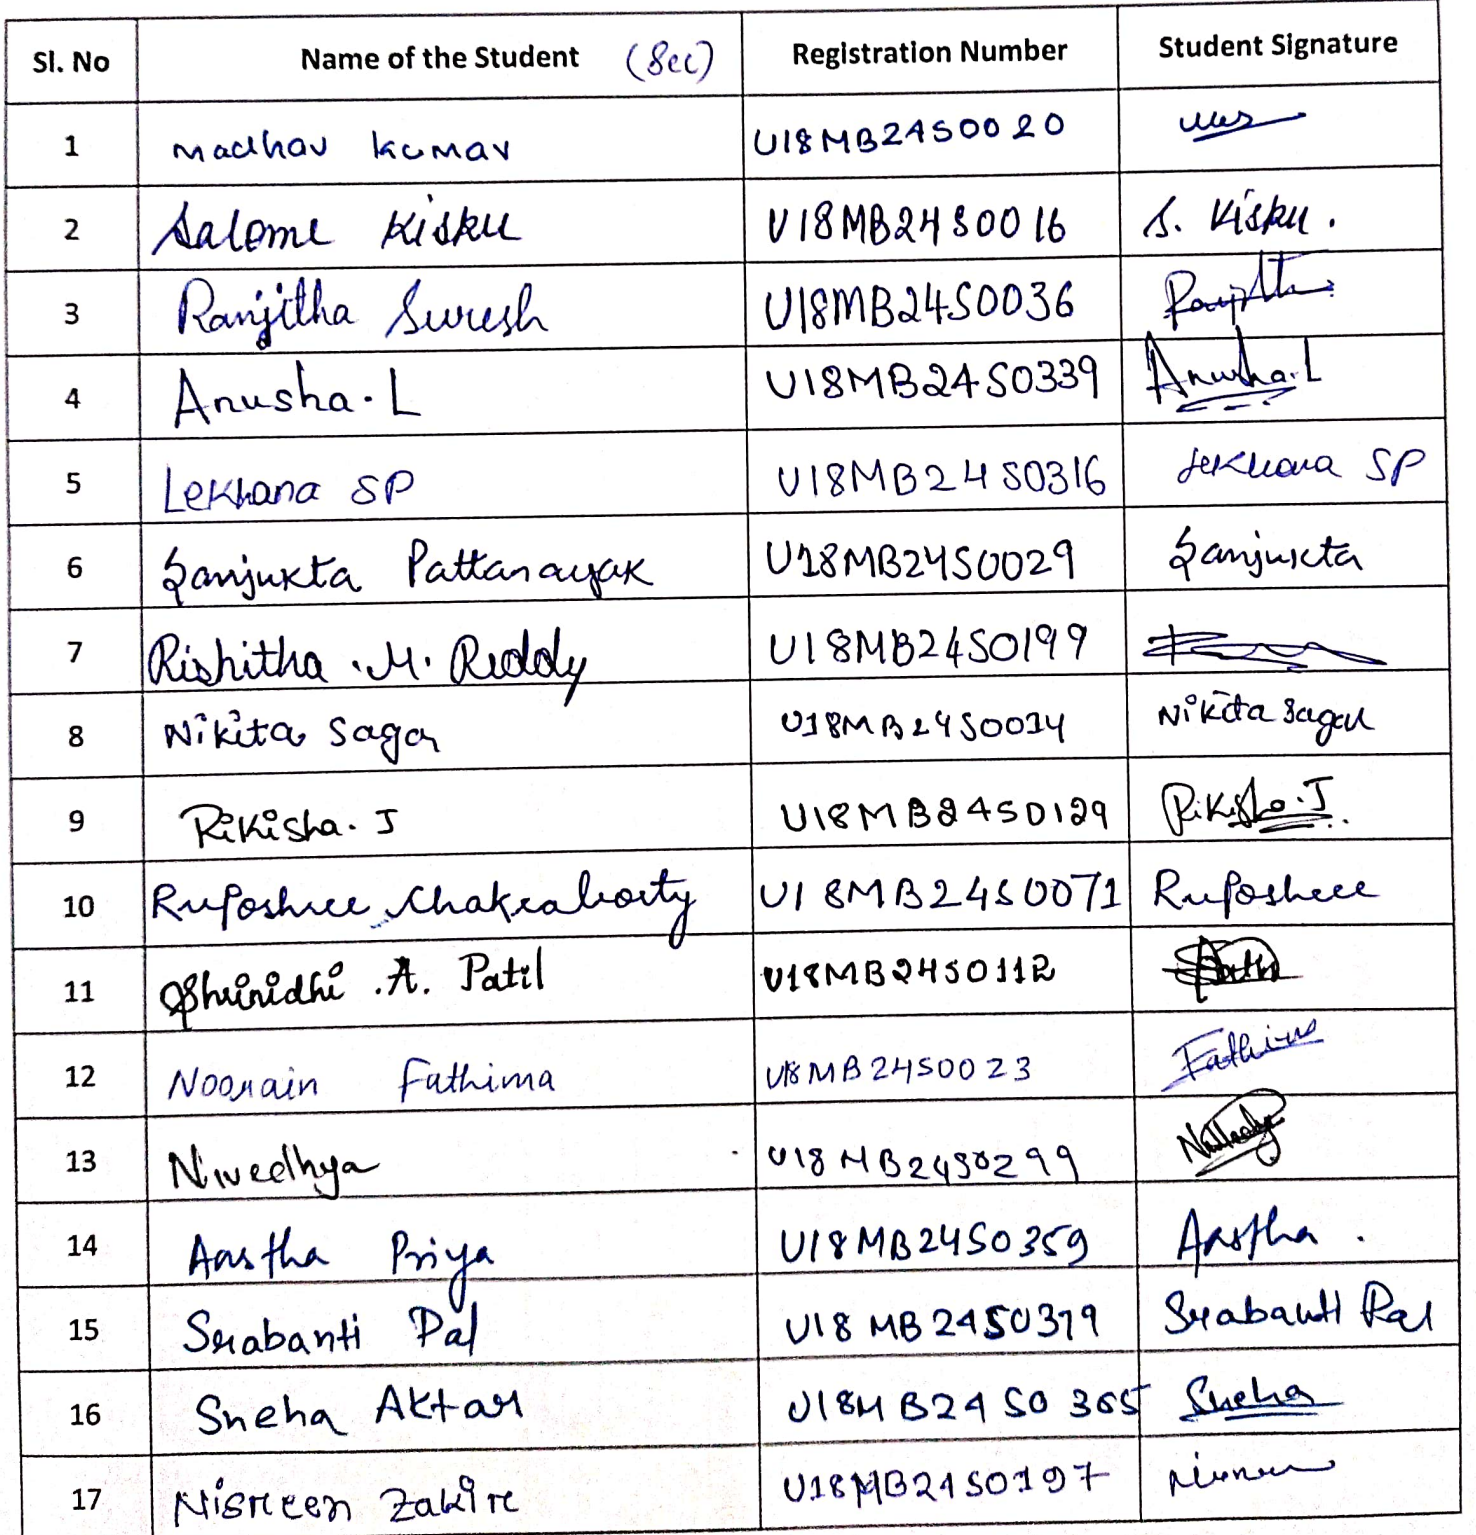 Sl. No Name of the Student (Sec) Registration Number Student Signature
1 Madhav Kumar U18MB24S0020
2 Salome Kisku U18MB24S0016 S. Kisku.
3 Ranjitha Suresh U18MB24S0036
4 Anusha.L U18MB24S0339 Anusha.L
5 Lekhana SP U18MB24S0316 Lekhana SP
6 Sanjukta Pattanayak U18MB24S0029 Sanjukta
7 Rishitha .M. Reddy U18MB24S0199
8 Nikita Sagar U18MB24S0014 Nikita Sagar
9 Rikisha. J U18MB24S0129 Rikisha.J
10 Ruposhree Chakraborty U18MB24S0071 Ruposhree
11 Shrinidhi .A. Patil U18MB24S0112
12 Noorain Fathima U18MB24S0023 Fathima
13 Nivedhya U18MB24S0299
14 Aastha Priya U18MB24S0359 Aastha .
15 Srabanti Pal U18MB24S0379 Srabanti Pal
16 Sneha Aktar U18MB24S0365 Sneha
17 Nisreen Zakire U18MB24S0197